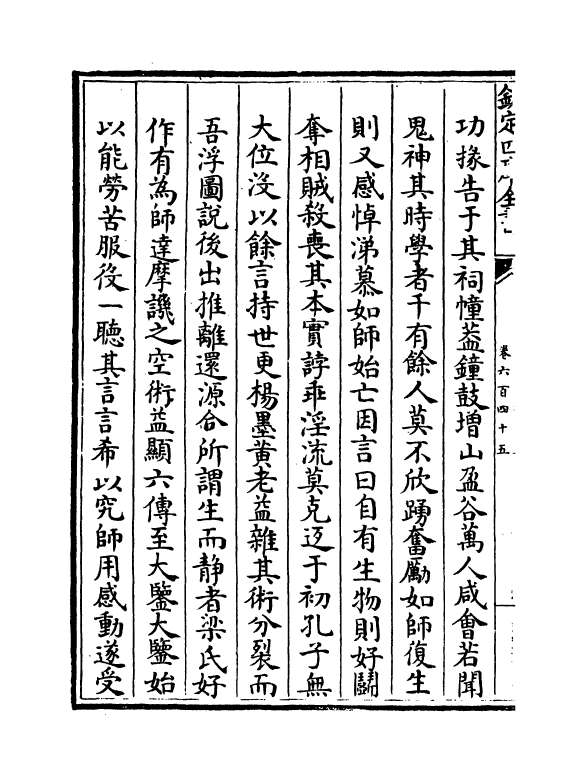 欽定四庫全書
卷六百四十五
功掾告于其祠幢葢鐘鼓増山盈谷萬人咸㑹若聞
鬼神其時學者千有餘人莫不欣踴奮勵如師復生
則又感悼涕慕如師始亡因言曰自有生物則好鬬
奪相賊殺喪其本實誖乖淫流莫克返于初孔子無
大位没以餘言持世更楊墨黄老益雜其術分裂而
吾浮圖說後出推離還源合所謂生而静者梁氏好
作有為師達摩譏之空術益顯六傳至大鑒大鑒始
以能勞苦服役一聽其言言希以究師用感動遂受